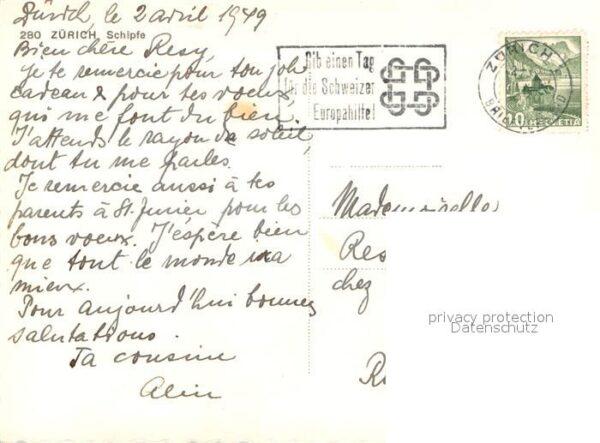 Zürich, le 2 avril 1949
280 ZÜRICH, Schipfe
Bien chère Resy,
Je te remercie pour ton joli
cadeau & pour tes voeux
qui me font du bien.
J'attends le rayon de soleil,
dont tu me parles.
Je remercie aussi à tes
parents à St. pour les
bons voeux. J'espère bien
que tout le monde ira
mieux.
Pour aujourd'hui bonnes
salutations.
Ta cousine
Gib einen Tag
für die Schweizer
Europahilfe!
ZÜRICH
10 HELVETIA
Mademoiselle
Res
chez
R
privacy protection
Datenschutz